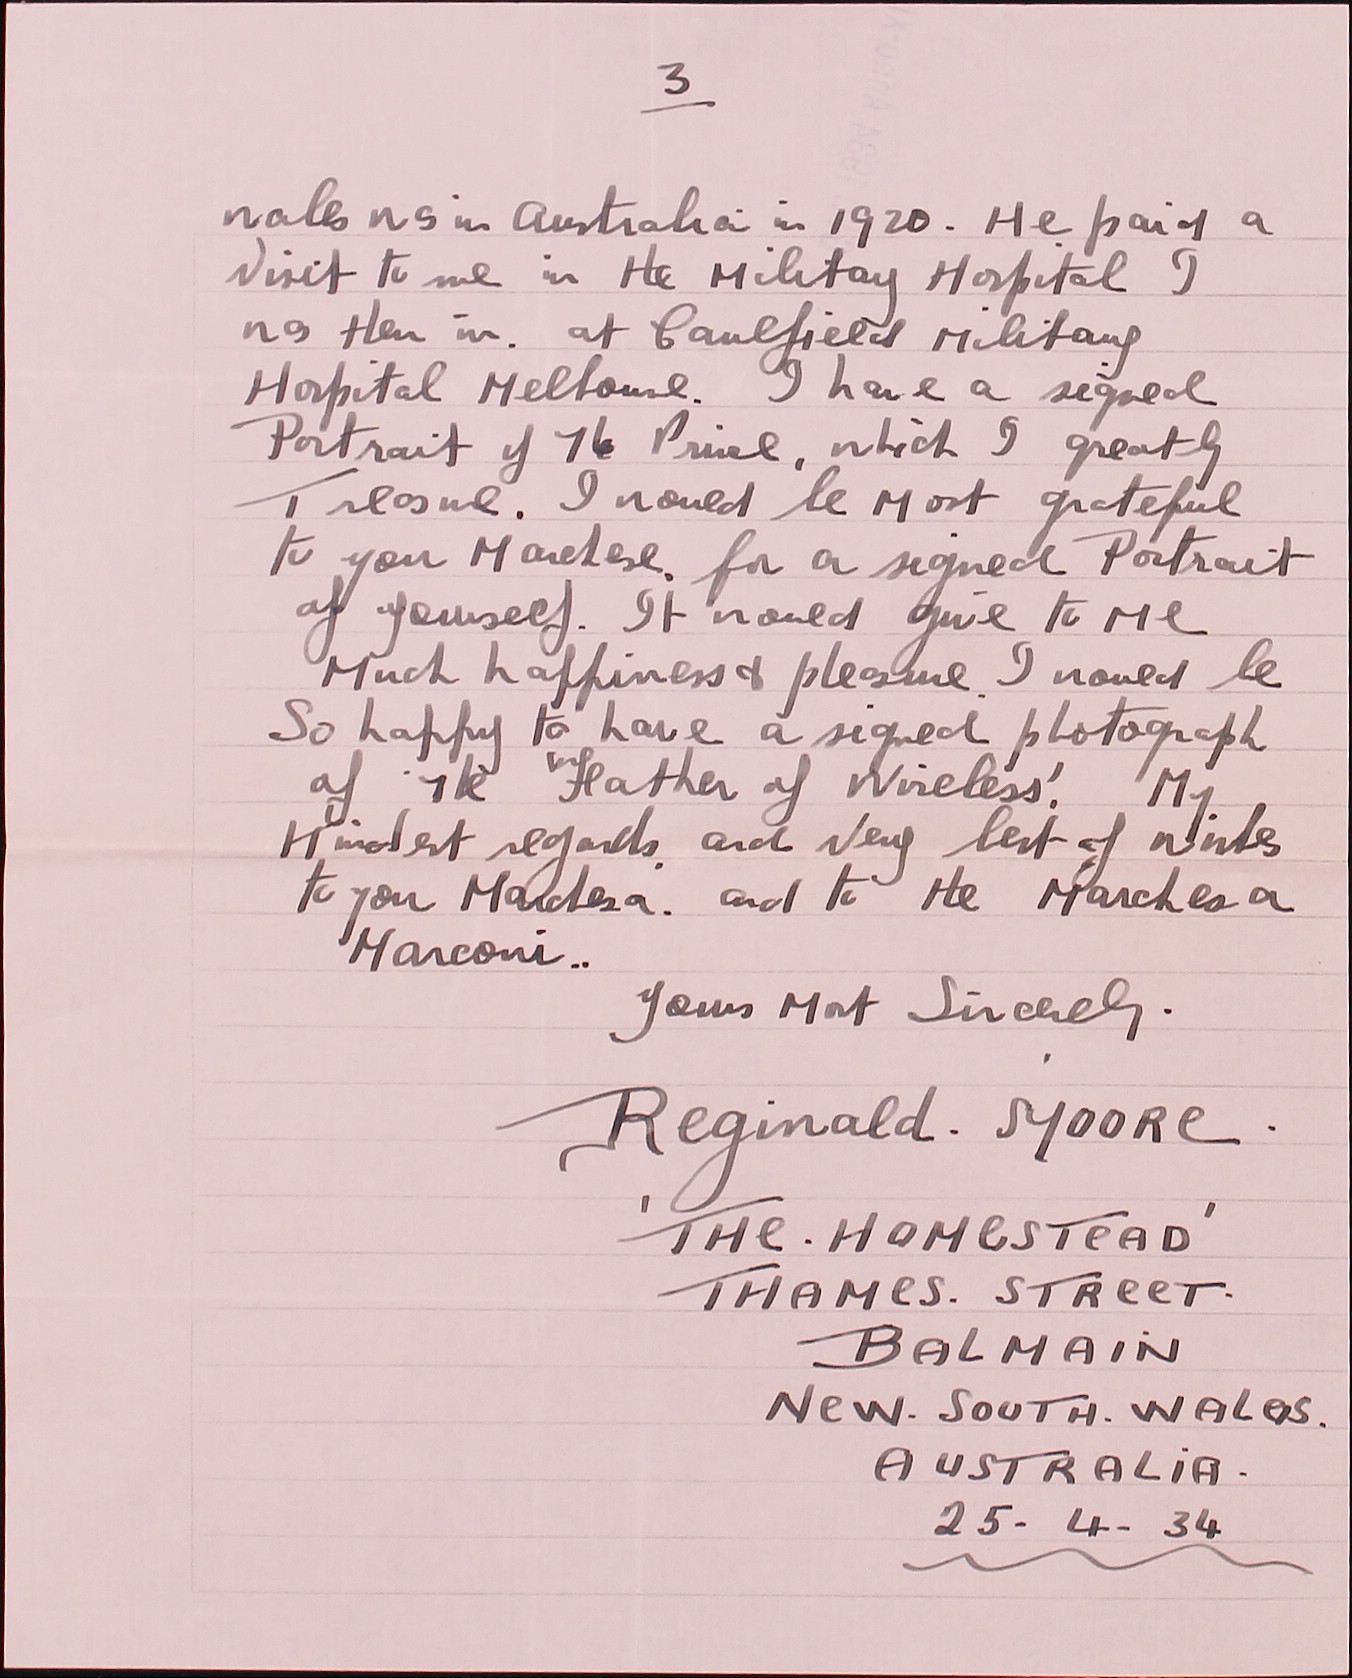 3
Wales was in Australia in 1920. He paid a
Visit to me in the Military Hospital I
was then in. at Caulfield Military
Hospital Melbourne. I have a signed
Portrait of The Prince, which I greatly
Treasure. I would be Most grateful
to you Marchese, for a signed Portrait
of yourself. It would give to Me
Much happiness & pleasure. I would be
So happy to have a signed photograph
of The "Father of Wireless'. My
Kindest regards, and very best of wishes
to you Marchesa. and to the Marchesa
Marconi..
Yours Most Sincerely.
Reginald. MOORE.
'THE. HOMESTEAD'
THAMES. STREET.
BALMAIN
NEW. SOUTH. WALES.
AUSTRALIA.
25- 4- 34